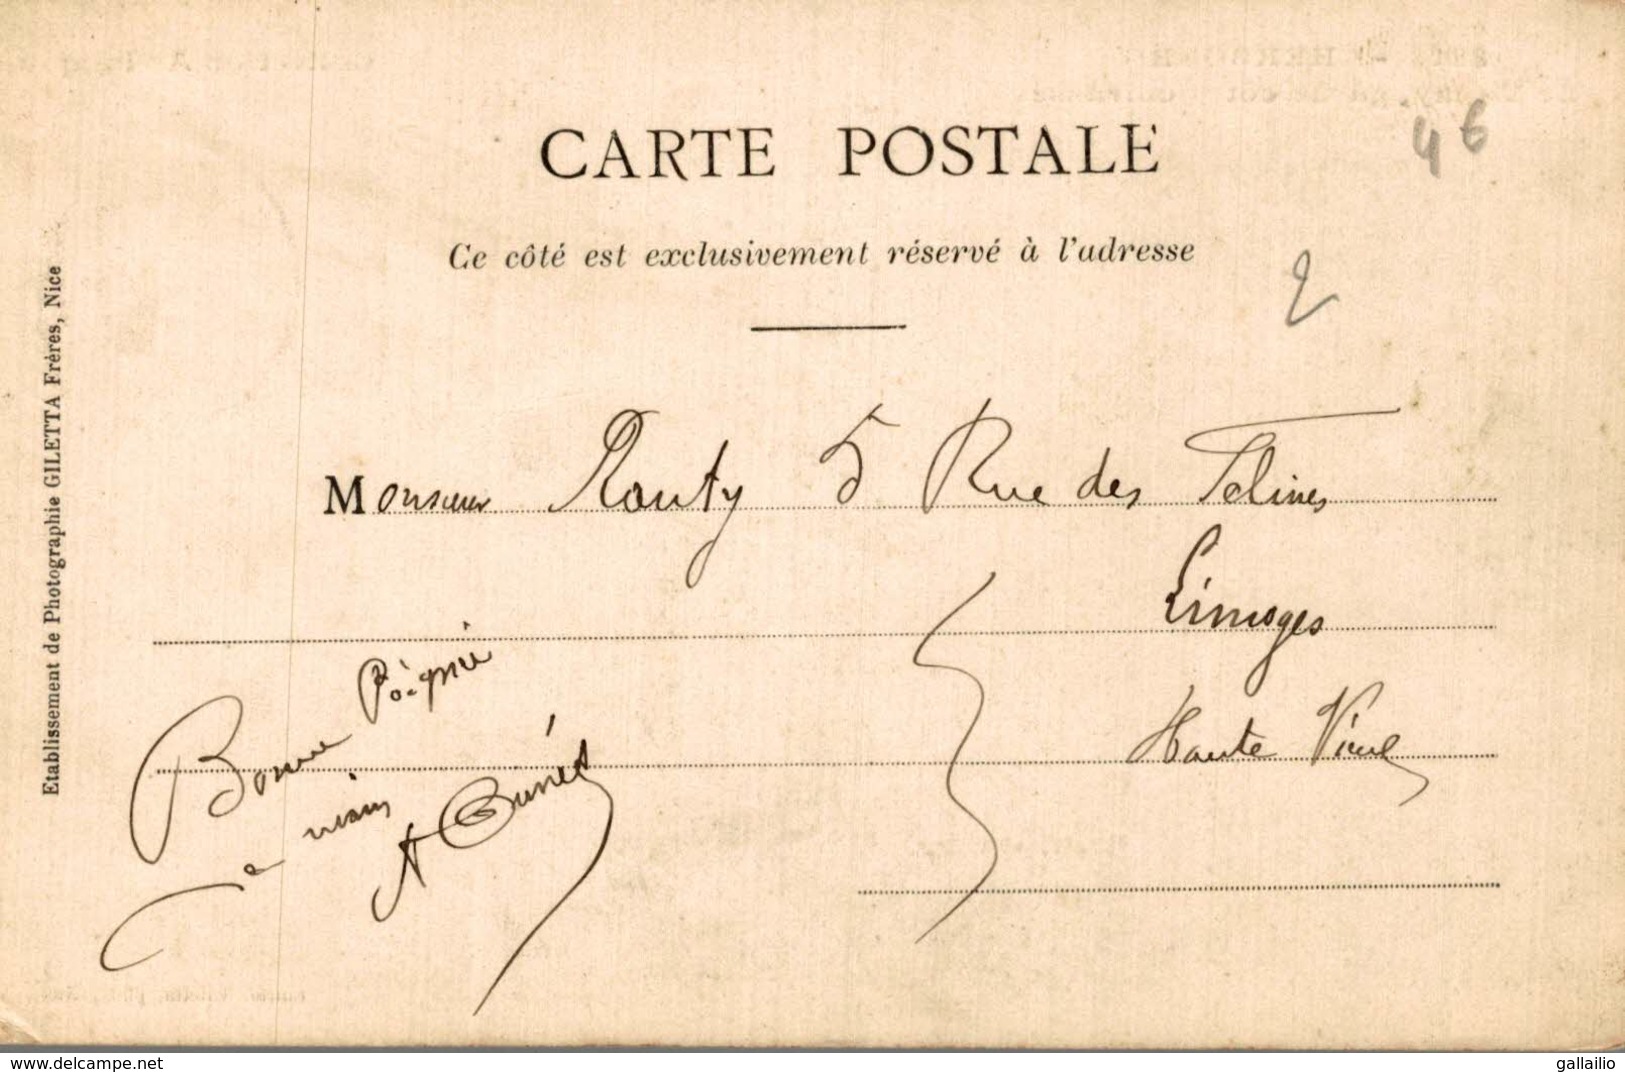 CARTE POSTALE
46
Ce côté est exclusivement réservé à l'adresse
2
Etablissement de Photographie GILETTA Frères, Nice
Monsieur Routy 5 Rue des
Limoges
Haute Vienne
Bonne Poignée
de main
delcampe.net
gallailio